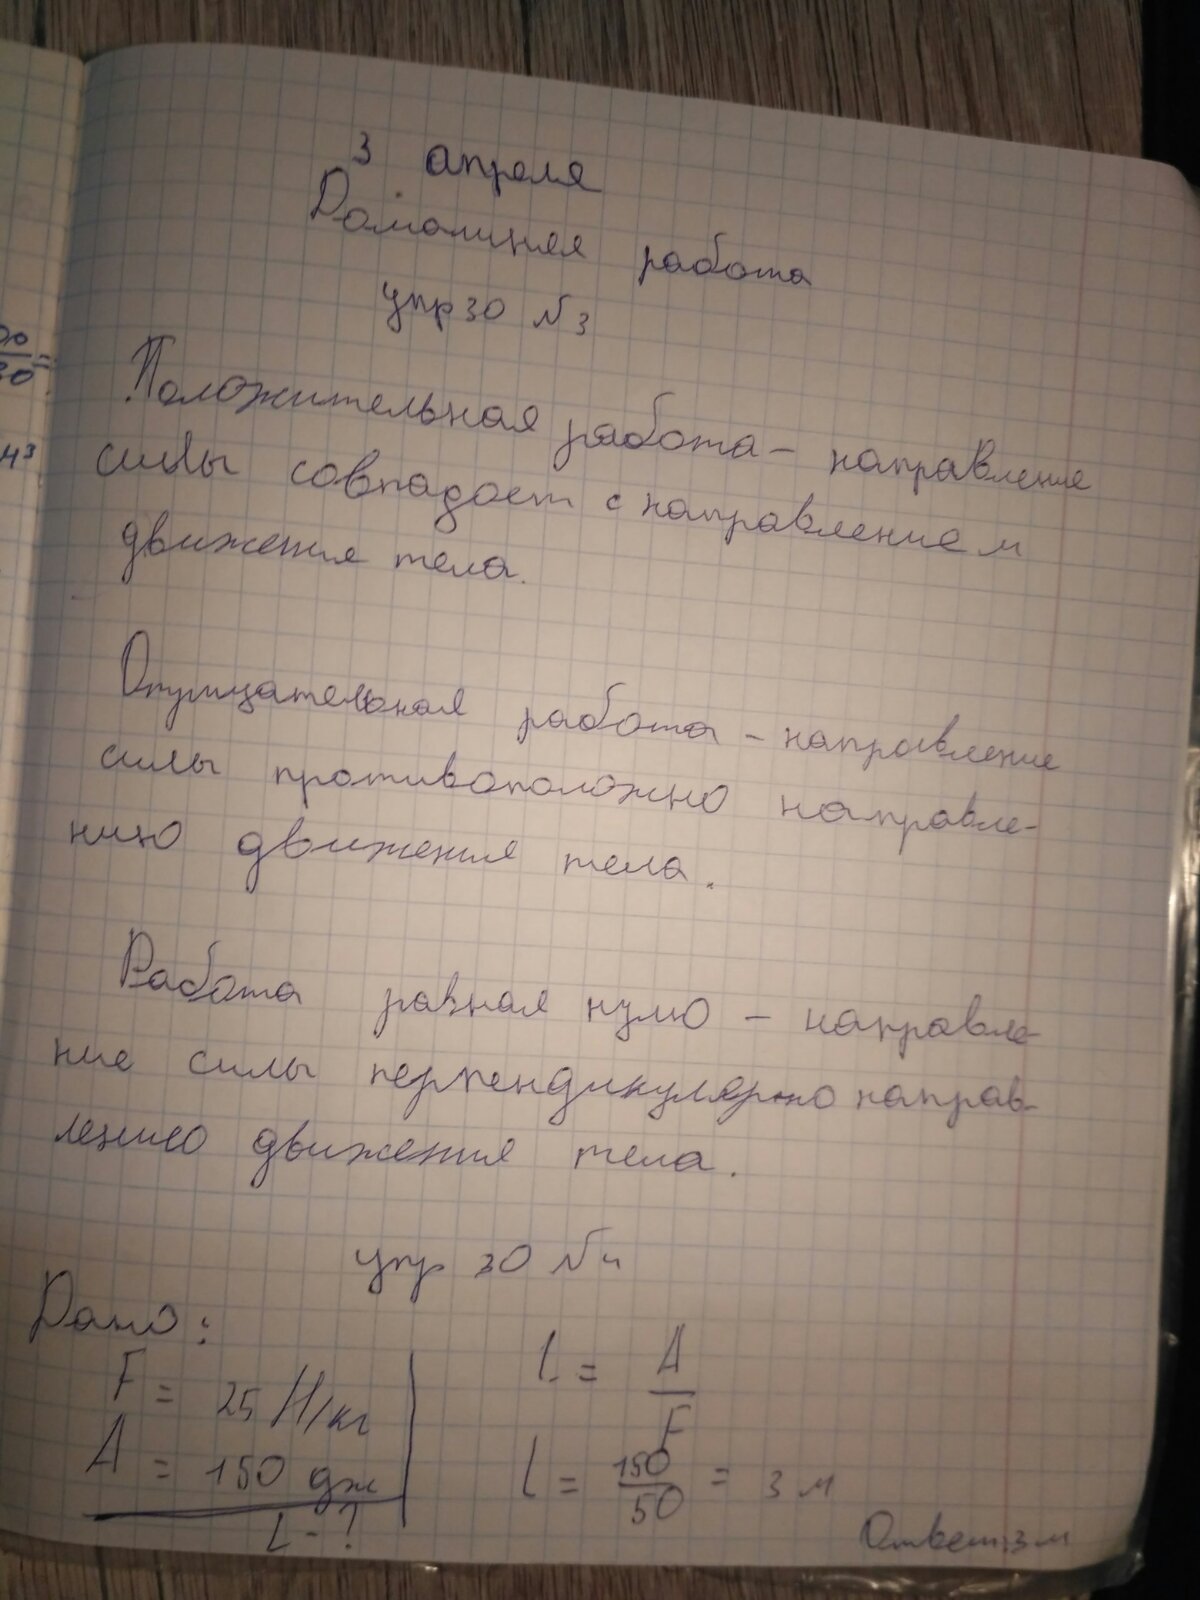 3 апреля
Домашняя работа
упр 30 №3
Положительная работа - направление
силы совпадает с направлением
движения тела.
Отрицательная работа - направление
силы противоположно направле-
нию движения тела.
Работа равная нулю - направле-
ние силы перпендикулярно направ-
лению движения тела.
упр 30 №4
Дано:
F = 25 Н/кг
A = 150 дж
L - ?
l = A/F
l = 150/50 = 3 м
Ответ: 3 м
00/30 =
м³